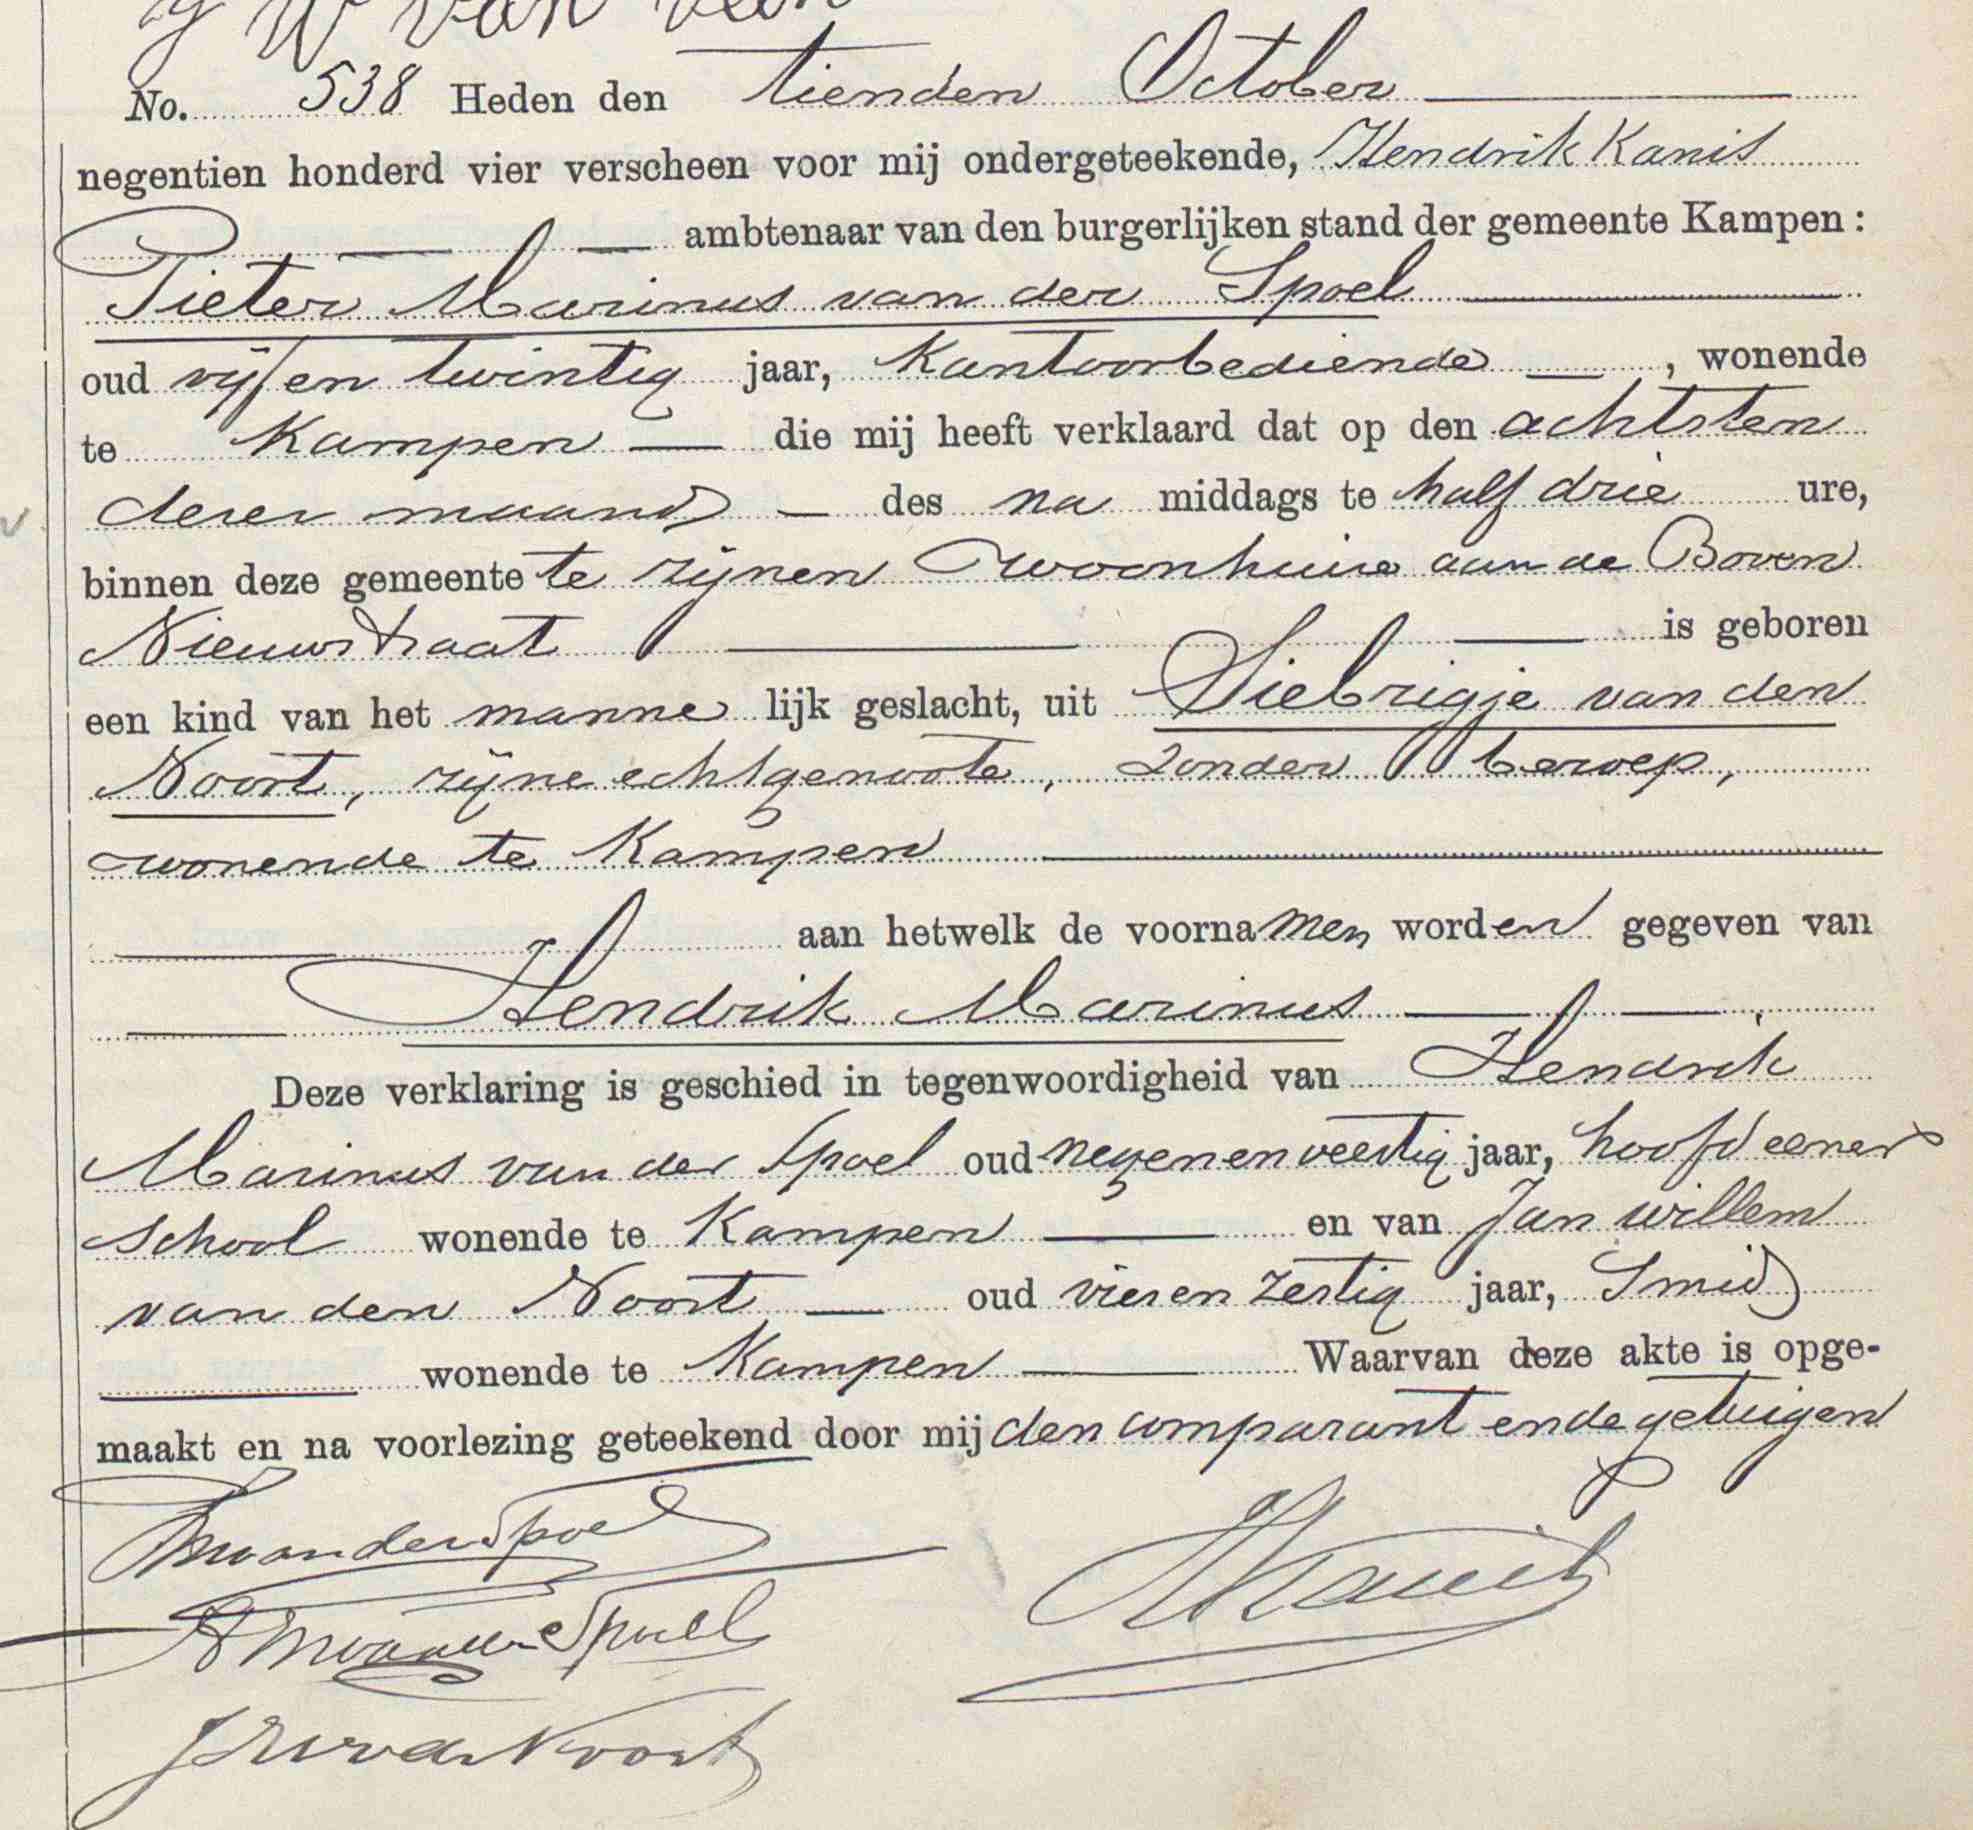 J W van Veen
No. 538 Heden den tienden October
negentien honderd vier verscheen voor mij ondergeteekende, Hendrik Kanis
ambtenaar van den burgerlijken stand der gemeente Kampen :
Pieter Marinus van der Spoel
oud vijf en twintig jaar, Kantoorbediende , wonende
te Kampen die mij heeft verklaard dat op den achtsten
dezer maand des na middags te half drie ure,
binnen deze gemeente te zijnen woonhuize aan de Boven
Nieuwstraat is geboren
een kind van het manne lijk geslacht, uit Siebrigje van den
Noort, zijne echtgenoote, zonder beroep,
wonende te Kampen
aan hetwelk de voornamen worden gegeven van
Hendrik Marinus .
Deze verklaring is geschied in tegenwoordigheid van Hendrik
Marinus van der Spoel oud negen en veertig jaar, hoofd eener
school wonende te Kampen en van Jan willem
van den Noort oud vier en zestig jaar, Smid
wonende te Kampen Waarvan deze akte is opge-
maakt en na voorlezing geteekend door mij den comparant en de getuigen
PMvanderSpoel
HKanis
HMvanderSpoel
JWvdNoort